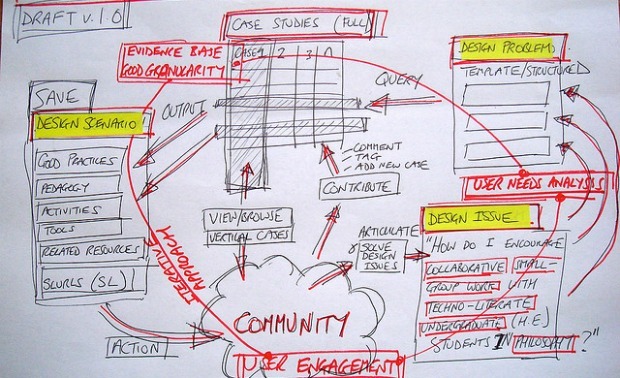 DRAFT V.1.0
CASE STUDIES (FULL)
EVIDENCE BASE
GOOD GRANULARITY
CASE 1
2
3
n
DESIGN PROBLEM
TEMPLATE/STRUCTURED
QUERY
SAVE
DESIGN SCENARIO
OUTPUT
GOOD PRACTICES
PEDAGOGY
ACTIVITIES
TOOLS
RELATED RESOURCES
SLURLS (SL)
COMMENT
TAG
ADD NEW CASE
CONTRIBUTE
USER NEEDS ANALYSIS
VIEW/BROWSE
VERTICAL CASES
ARTICULATE
SOLVE
DESIGN
ISSUES
DESIGN ISSUE
"HOW DO I ENCOURAGE
COLLABORATIVE SMALL-
GROUP WORK WITH
TECHNO-LITERATE
UNDERGRADUATE (H.E)
STUDENTS IN PHILOSOPHY?"
ITERATIVE
APPROACH
COMMUNITY
USER ENGAGEMENT
ACTION